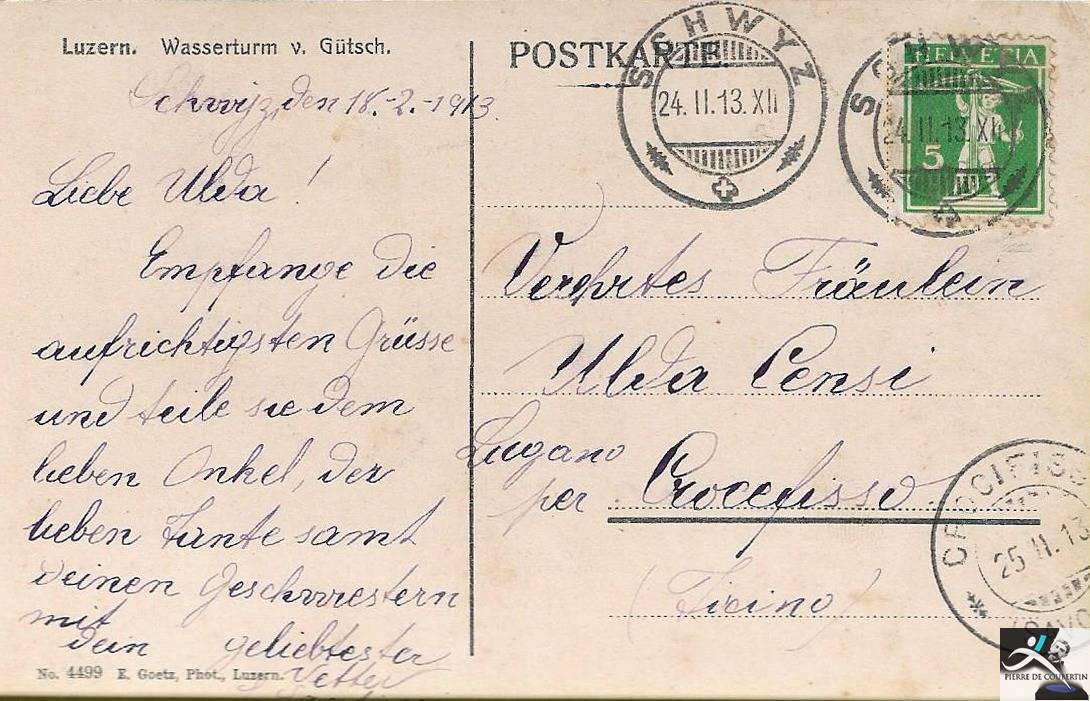 Luzern. Wasserturm v. Gütsch.
Schwyz, den 18.-2.-1913.
Liebe Ulda!
Empfange die
aufrichtigsten Grüsse
und teile sie dem
lieben Onkel, der
lieben Tante samt
deinen Geschwestern
mit
dein geliebtester
Vetter
No. 4499 E. Goetz, Phot., Luzern.
POSTKARTE
SCHWYZ
24. II. 13. XII
HELVETIA
5
SCHWYZ
24. II. 13. XII
Verehrtes Fräulein
Ulda Censi
Lugano
per Crocefisso
(Ticino)
CROCIFISSO
25 II. 13
(SAVO
PIERRE DE COUBERTIN